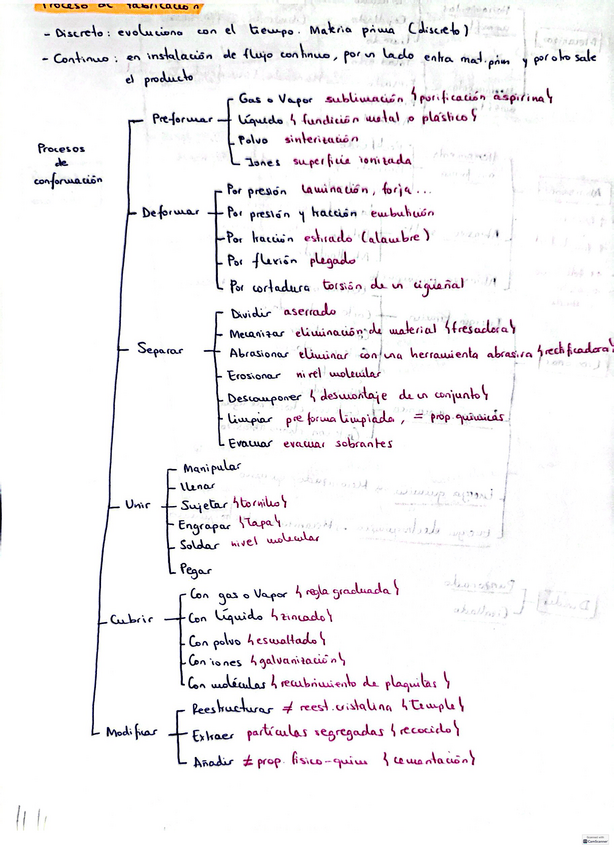 Proceso de fabricación
- Discreto: evoluciona con el tiempo. Materia prima (discreto)
- Continuo: en instalación de flujo continuo, por un lado entra mat.prim y por otro sale
el producto
Procesos
de
conformación
Preformar
Gas o Vapor sublimación {purificación aspirina}
Líquido {fundición metal o plástico}
Polvo sinterización
Iones superficie ionizada
Deformar
Por presión laminación, forja...
Por presión y tracción embutición
Por tracción estirado (alambre)
Por flexión plegado
Por cortadura torsión de un cigüeñal
Separar
Dividir aserrado
Mecanizar eliminación de material {fresadora}
Abrasionar eliminar con una herramienta abrasiva {rectificadora}
Erosionar nivel molecular
Descomponer {desmontaje de un conjunto}
Limpiar preforma limpiada, = prop. químicas
Evacuar evacuar sobrantes
Unir
Manipular
Llenar
Sujetar {tornillo}
Engrapar {Tapa}
Soldar nivel molecular
Pegar
Cubrir
Con gas o Vapor {regla graduada}
Con Líquido {zincado}
Con polvo {esmaltado}
Con iones {galvanización}
Con moléculas {recubrimiento de plaquitas}
Modificar
Reestructurar ≠ reest. cristalina {Temple}
Extraer partículas segregadas {recocido}
Añadir ≠ prop. físico-quim {cementación}
CamScanner